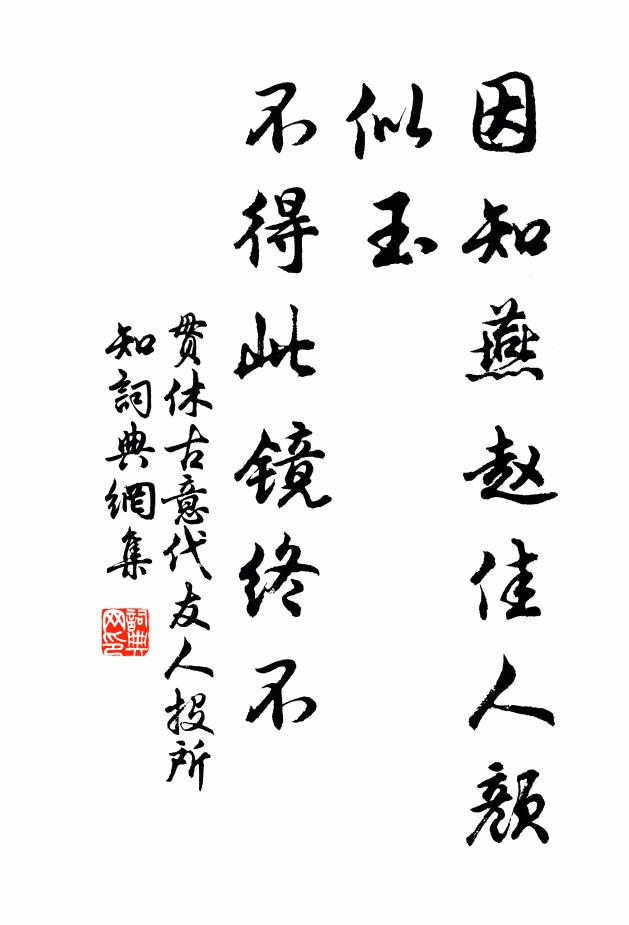 因知燕赵佳人颜
似玉
不得此镜终不
贯休古意代友人投所
知詞典網集
詞典
网印